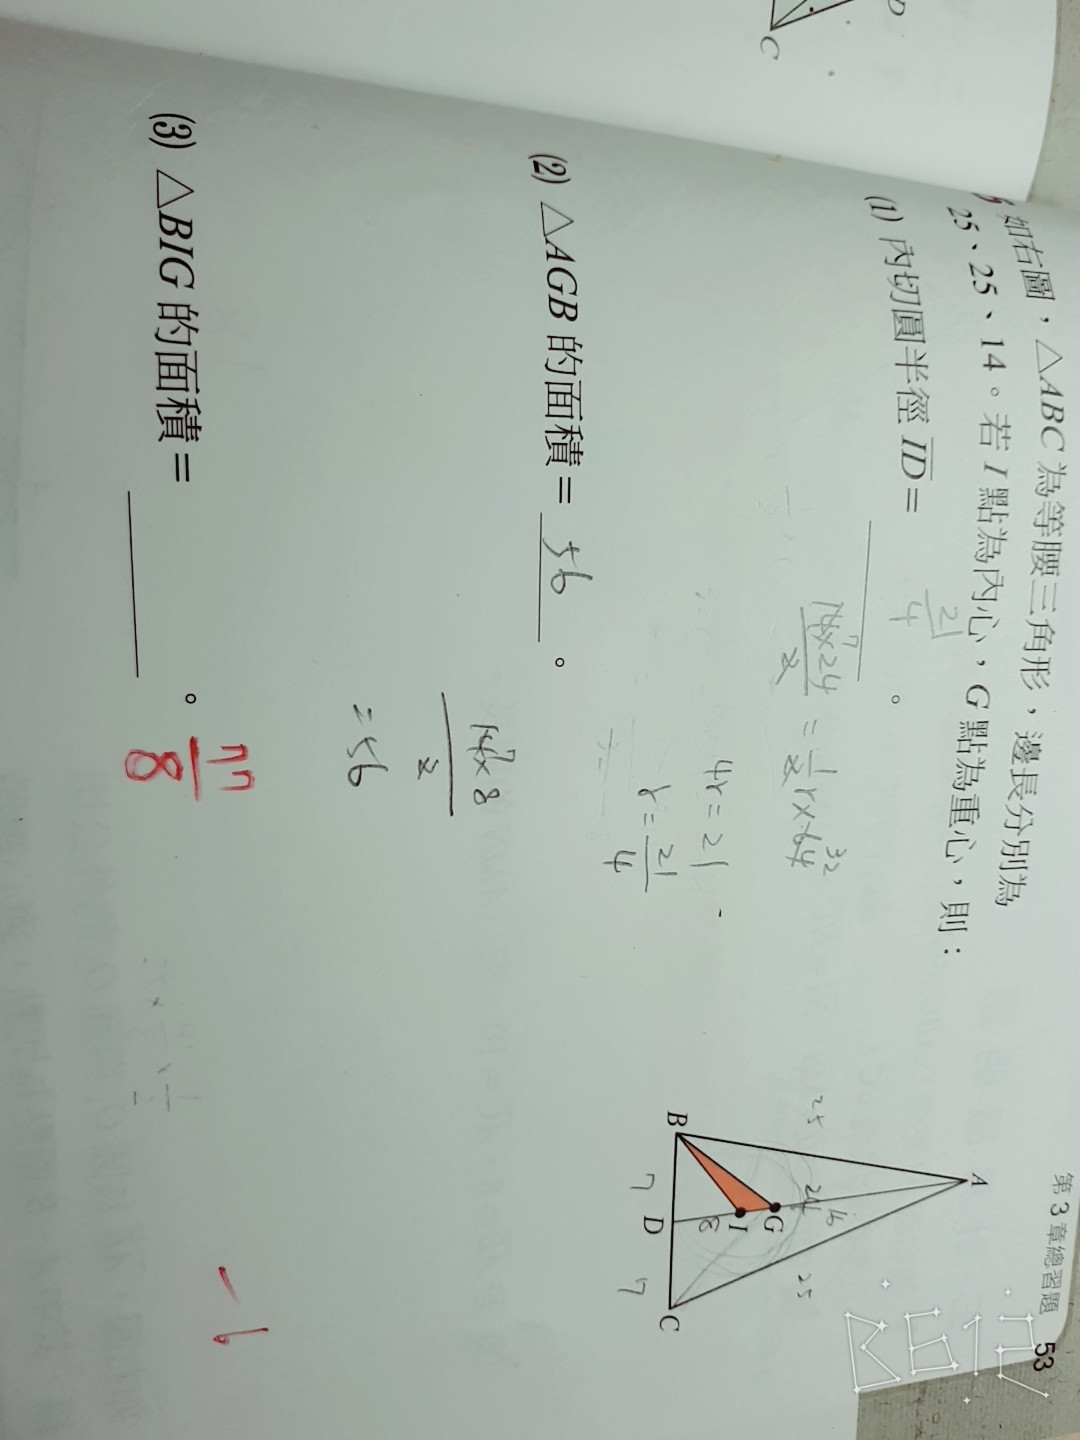 第3章總習題 53
如右圖，△ABC 為等腰三角形，邊長分別為
25、25、14。若 I 點為內心，G 點為重心，則：
(1) 內切圓半徑 ID＝ 21/4 。
14×24/2 = 1/2 r×64
7
32
4r = 21
r = 21/4
(2) △AGB 的面積＝ 56 。
14×8/2
7
= 56
(3) △BIG 的面積＝ 。
77/8
-6
A
25
25
24
16
G
I
8
B
7
D
7
C
D
C